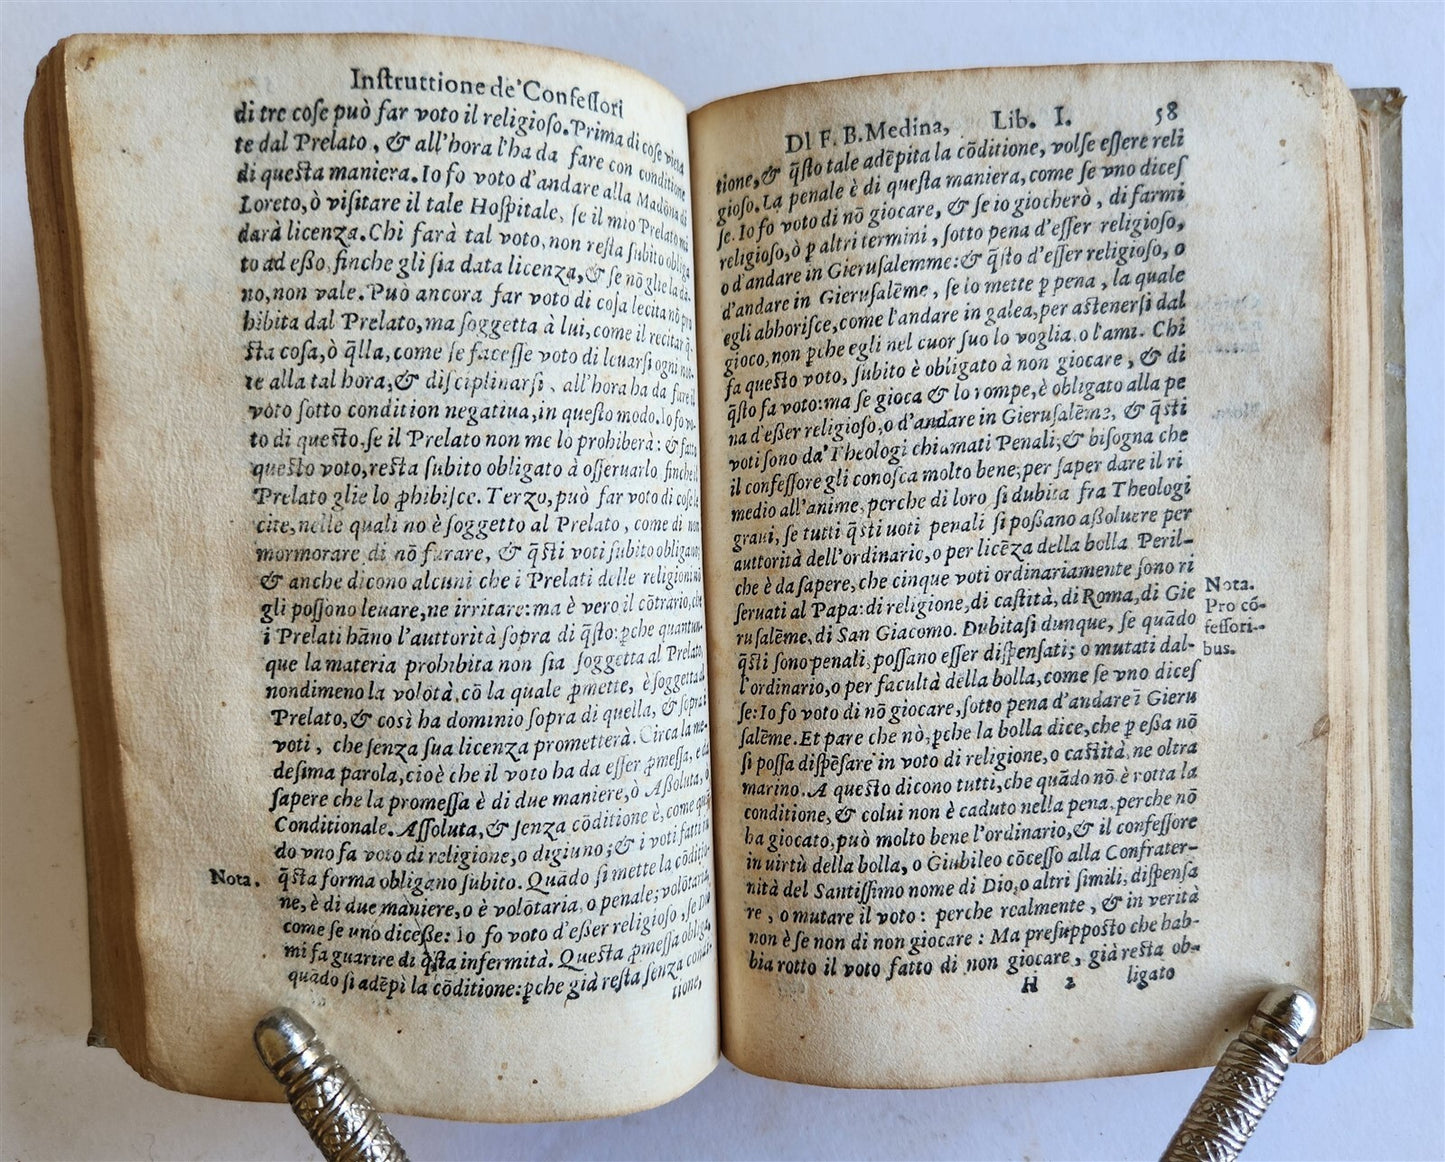 Inſtruttione de' Confeſſori
di tre coſe può far voto il religioſo. Prima di coſe vieta
te dal Prelato, & all'hora l'ha da fare con conditione
di queſta maniera. Io fo voto d'andare alla Madōna di
Loreto, ò viſitare il tale Hoſpitale, ſe il mio Prelato mi
darà licenza. Chi farà tal voto, non reſta ſubito obliga
to ad eßo, finche gli ſia data licenza, & ſe nō glie la dā
no, non vale. Può ancora far voto di coſa lecita nō pro
hibita dal Prelato, ma ſoggetta à lui, come il recitar q̃
ſta coſa, ò q̃lla, come ſe faceſſe voto di leuarſi ogni not-
te alla tal hora, & diſciplinarſi, all'hora ha da fare il
vòto ſotto condition negatiua, in queſto modo. Io fo vo-
to di queſto, ſe il Prelato non me lo prohiberà: & fatto
queſto voto, reſta ſubito obligato à oſſeruarlo, finche il
Prelato glie lo p̱hibiſce. Terzo, può far voto di coſe le
cite, nelle quali nō è ſoggetto al Prelato, come di non
mormorare di nō furare, & q̃ſti voti ſubito obligano;
& anche dicono alcuni che i Prelati delle religioni nō
gli poſſono leuare, ne irritare: ma è vero il cōtrario, che
i Prelati hāno l'auttorità ſopra di q̃ſto: p̱che quantun-
que la materia prohibita non ſia ſoggetta al Prelato,
nondimeno la volōtà, cō la quale p̱mette, è ſoggetta al
Prelato, & così ha dominio ſopra di quella, & ſopra i
voti, che ſenza ſua licenza prometterà. Circa la me-
deſima parola, cioè che il voto ha da eſſer p̱meſſa, e da
ſapere che la promeſſa è di due maniere, ò Aßoluta, o
Conditionale. Aſſoluta, & ſenza cōditione è, come quā
do vno fa voto di religione, o digiuno; & i voti fatti in
Nota.
q̃ſta forma obligano ſubito. Quādo ſi mette la cōditio-
ne, è di due maniere, o è volōtaria, o penale; volōtaria,
come ſe uno diceße: Io fo voto d'eßer religioſo, ſe Dio
mi fa guarire di q̃ſta infermità. Queſta p̱meſſa obliga,
quādo ſi adēpì la cōditione: p̱che già reſta ſenza condi-
tione,
DI F. B. Medina, Lib. I. 58
tione, & q̃ſto tale adēpita la cōditione, volſe eſſere reli
gioſo. La penale è di queſta maniera, come ſe vno diceſ
ſe. Io fo voto di nō giocare, & ſe io giocherò, di farmi
religioſo, ò p̱ altri termini, ſotto pena d'eſſer religioſo,
o d'andare in Gieruſalemme: & q̃ſto d'eſſer religioſo, o
d'andare in Gieruſalēme, ſe lo mette p̱ pena, la quale
egli abhoriſce, come l'andare in galea, per astenersi dal
gioco, non p̱che egli nel cuor ſuo lo voglia, o l'ami. Chi
fa queſto voto, ſubito è obligato à non giocare, & di
q̃ſto fa voto: ma ſe gioca & lo rompe, è obligato alla pe
na d'eßer religioſo, o d'andare in Gieruſalēme, & q̃ſti
voti ſono da' Theologi chiamati Penali; & biſogna che
il confeſſore gli conoſca molto bene, per ſaper dare il ri
medio all'anime, perche di loro ſi dubita fra Theologi
graui, ſe tutti q̃ſti uoti penali ſi poßano aßoluere per
auttorità dell'ordinario, o per licēza della bolla. Peril-
che è da ſapere, che cinque voti ordinariamente ſono ri
ſeruati al Papa: di religione, di caſtità, di Roma, di Gie
ruſalēme, di San Giacomo. Dubitaſi dunque, ſe quādo
q̃ſti ſono penali, poſſano eſſer diſpenſati; o mutati dal-
l'ordinario, o per facultà della bolla, come ſe vno diceſ
ſe: Io fo voto di nō giocare, ſotto pena d'andare ī Gieru
ſalēme. Et pare che nò, p̱che la bolla dice, che p̱ eßa nō
ſi poſſa diſpēſare in voto di religione, o caſtità, ne oltra
marino. A queſto dicono tutti, che quādo nō è rotta la
conditione, & colui non è caduto nella pena, perche nō
ha giocato, può molto bene l'ordinario, & il confeſſore
in uirtù della bolla, o Giubileo cōceſſo alla Confrater-
nità del Santiſſimo nome di Dio, o altri ſimili, diſpenſa
re, o mutare il voto: perche realmente, & in verità
non è ſe non di non giocare: Ma preſuppoſto che hab-
bia rotto il voto fatto di non giocare, già reſta ob-
H 2 ligato
Nota.
Pro cō-
feſſori-
bus.